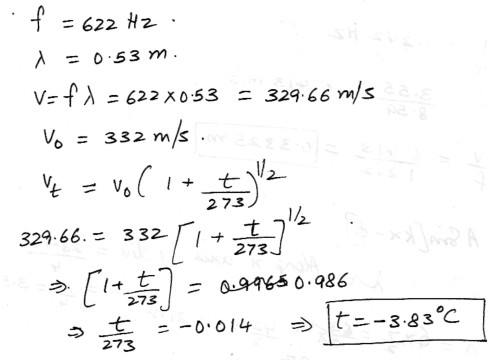 f = 622 Hz.
λ = 0.53 m.
V = f λ = 622 x 0.53 = 329.66 m/s
V₀ = 332 m/s.
Vₜ = V₀ ( 1 + t/273 )^1/2
329.66. = 332 [ 1 + t/273 ]^1/2
⇒ [ 1 + t/273 ] = 0.9965 0.986
⇒ t/273 = -0.014 ⇒ t = -3.83°C